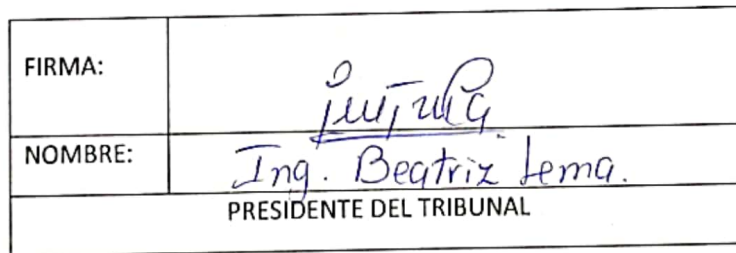 FIRMA:
NOMBRE: Ing. Beatriz Lema.
PRESIDENTE DEL TRIBUNAL